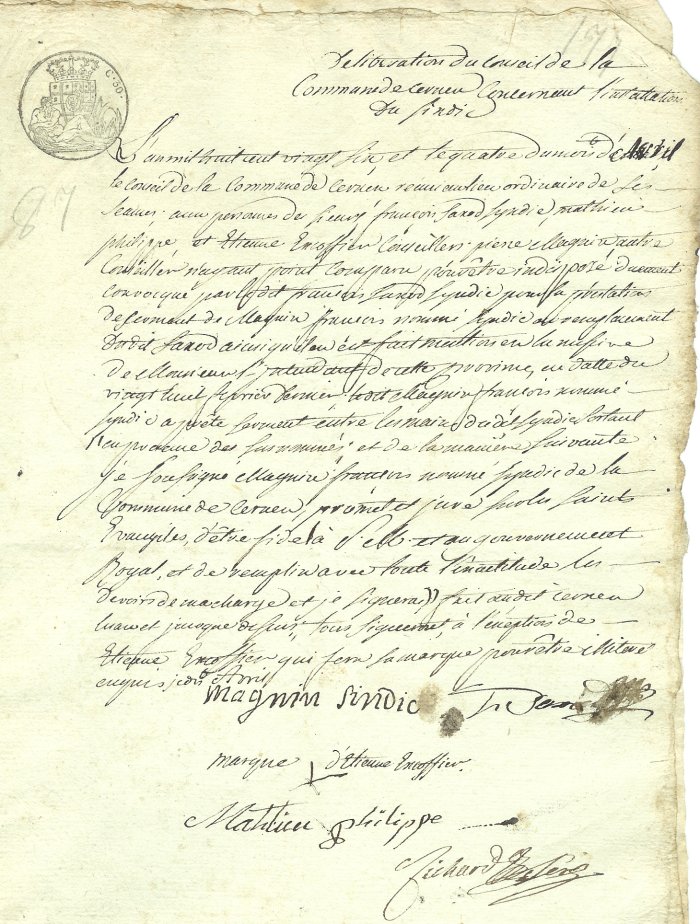 17
Deliberation du Conseil de la
Commune de Cernex Concernent l'instalation
Du Sindic
C. 30.
87
L'an mil huit cent vingt six et le quatre du mois d'Avril
le Conseil de la Commune de Cernex réuni au lieu ordinaire de ses
seances aux personnes des sieurs françois Saxod Syndic, mathieu
philippe et Etienne Encoffier Conseillers pierre Magnin autre
Conseiller n'ayant point comparu pour être indisposé duement
Convocqué par ledit françois Saxod Syndic pour la prestation
de serment de Magnin françois nommé Syndic en remplacement
Dudit Saxod ainsi qu'il en est fait mention en la missive
de Monsieur L' de cette province, en datte du
vingt huit fevrier dernier ledit Magnin françois nommé
Syndic a prêté serment entre les mains dudit Syndic sortant
en presence des susnommés et de la maniere suivante
je soussigné Magnin françois nommé Syndic de la
Commune de Cernex promet et jure sur les saints
Evangiles, d'être fidel à S. M. et au gouvernement
Royal, et de remplir avec toute l'exactitude les
Devoirs de ma charge et je signerai fait audit Cernex
l'an et jour que dessus, tous signeront à l'éxeption de
Etienne Encoffier qui fera sa marque pour être illiteré
enquis
magnin Sindic
marque d'Etienne Encoffier.
Mathieu philippe
Richard